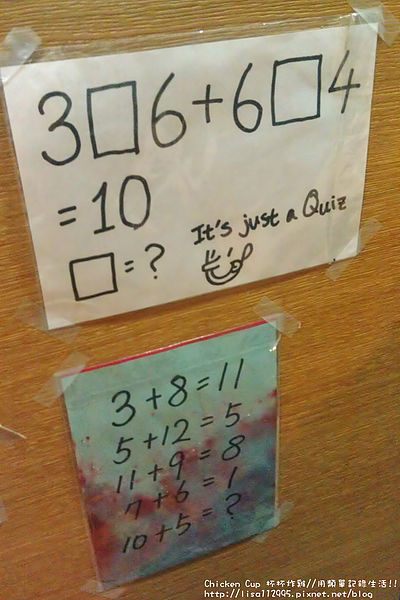 3□6+6□4
=10
□=?
It's just a Quiz
3+8=11
5+12=5
11+9=8
7+6=1
10+5=?
Chicken Cup 杯杯炸雞//用類單記錄生活!!
http://lisa112995.pixnet.net/blog